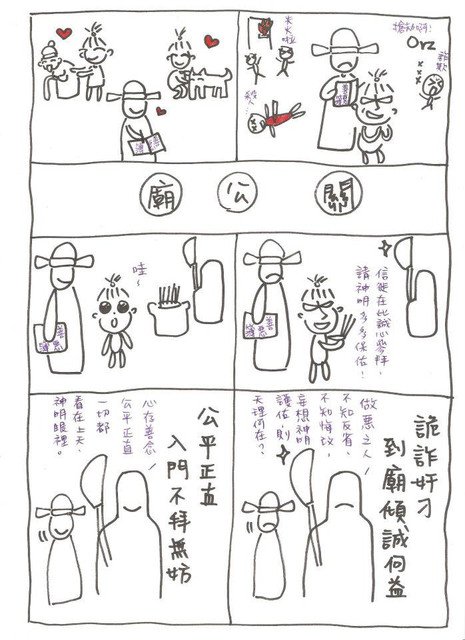 搶劫啊!
Orz
詐欺
失火啦
殺…
關公廟
信徒在此誠心參拜,
請神明多多保佑!
善惡
簿
哇~
善惡
簿
詭詐奸刁
到廟傾誠何益
做惡之人,
不知反省,
不知悔改,
妄想神明
護佑,則
天理何在?
公平正直
入門不拜無妨
心存善念,
公平正直
一切都
看在上天、
神明眼裡。